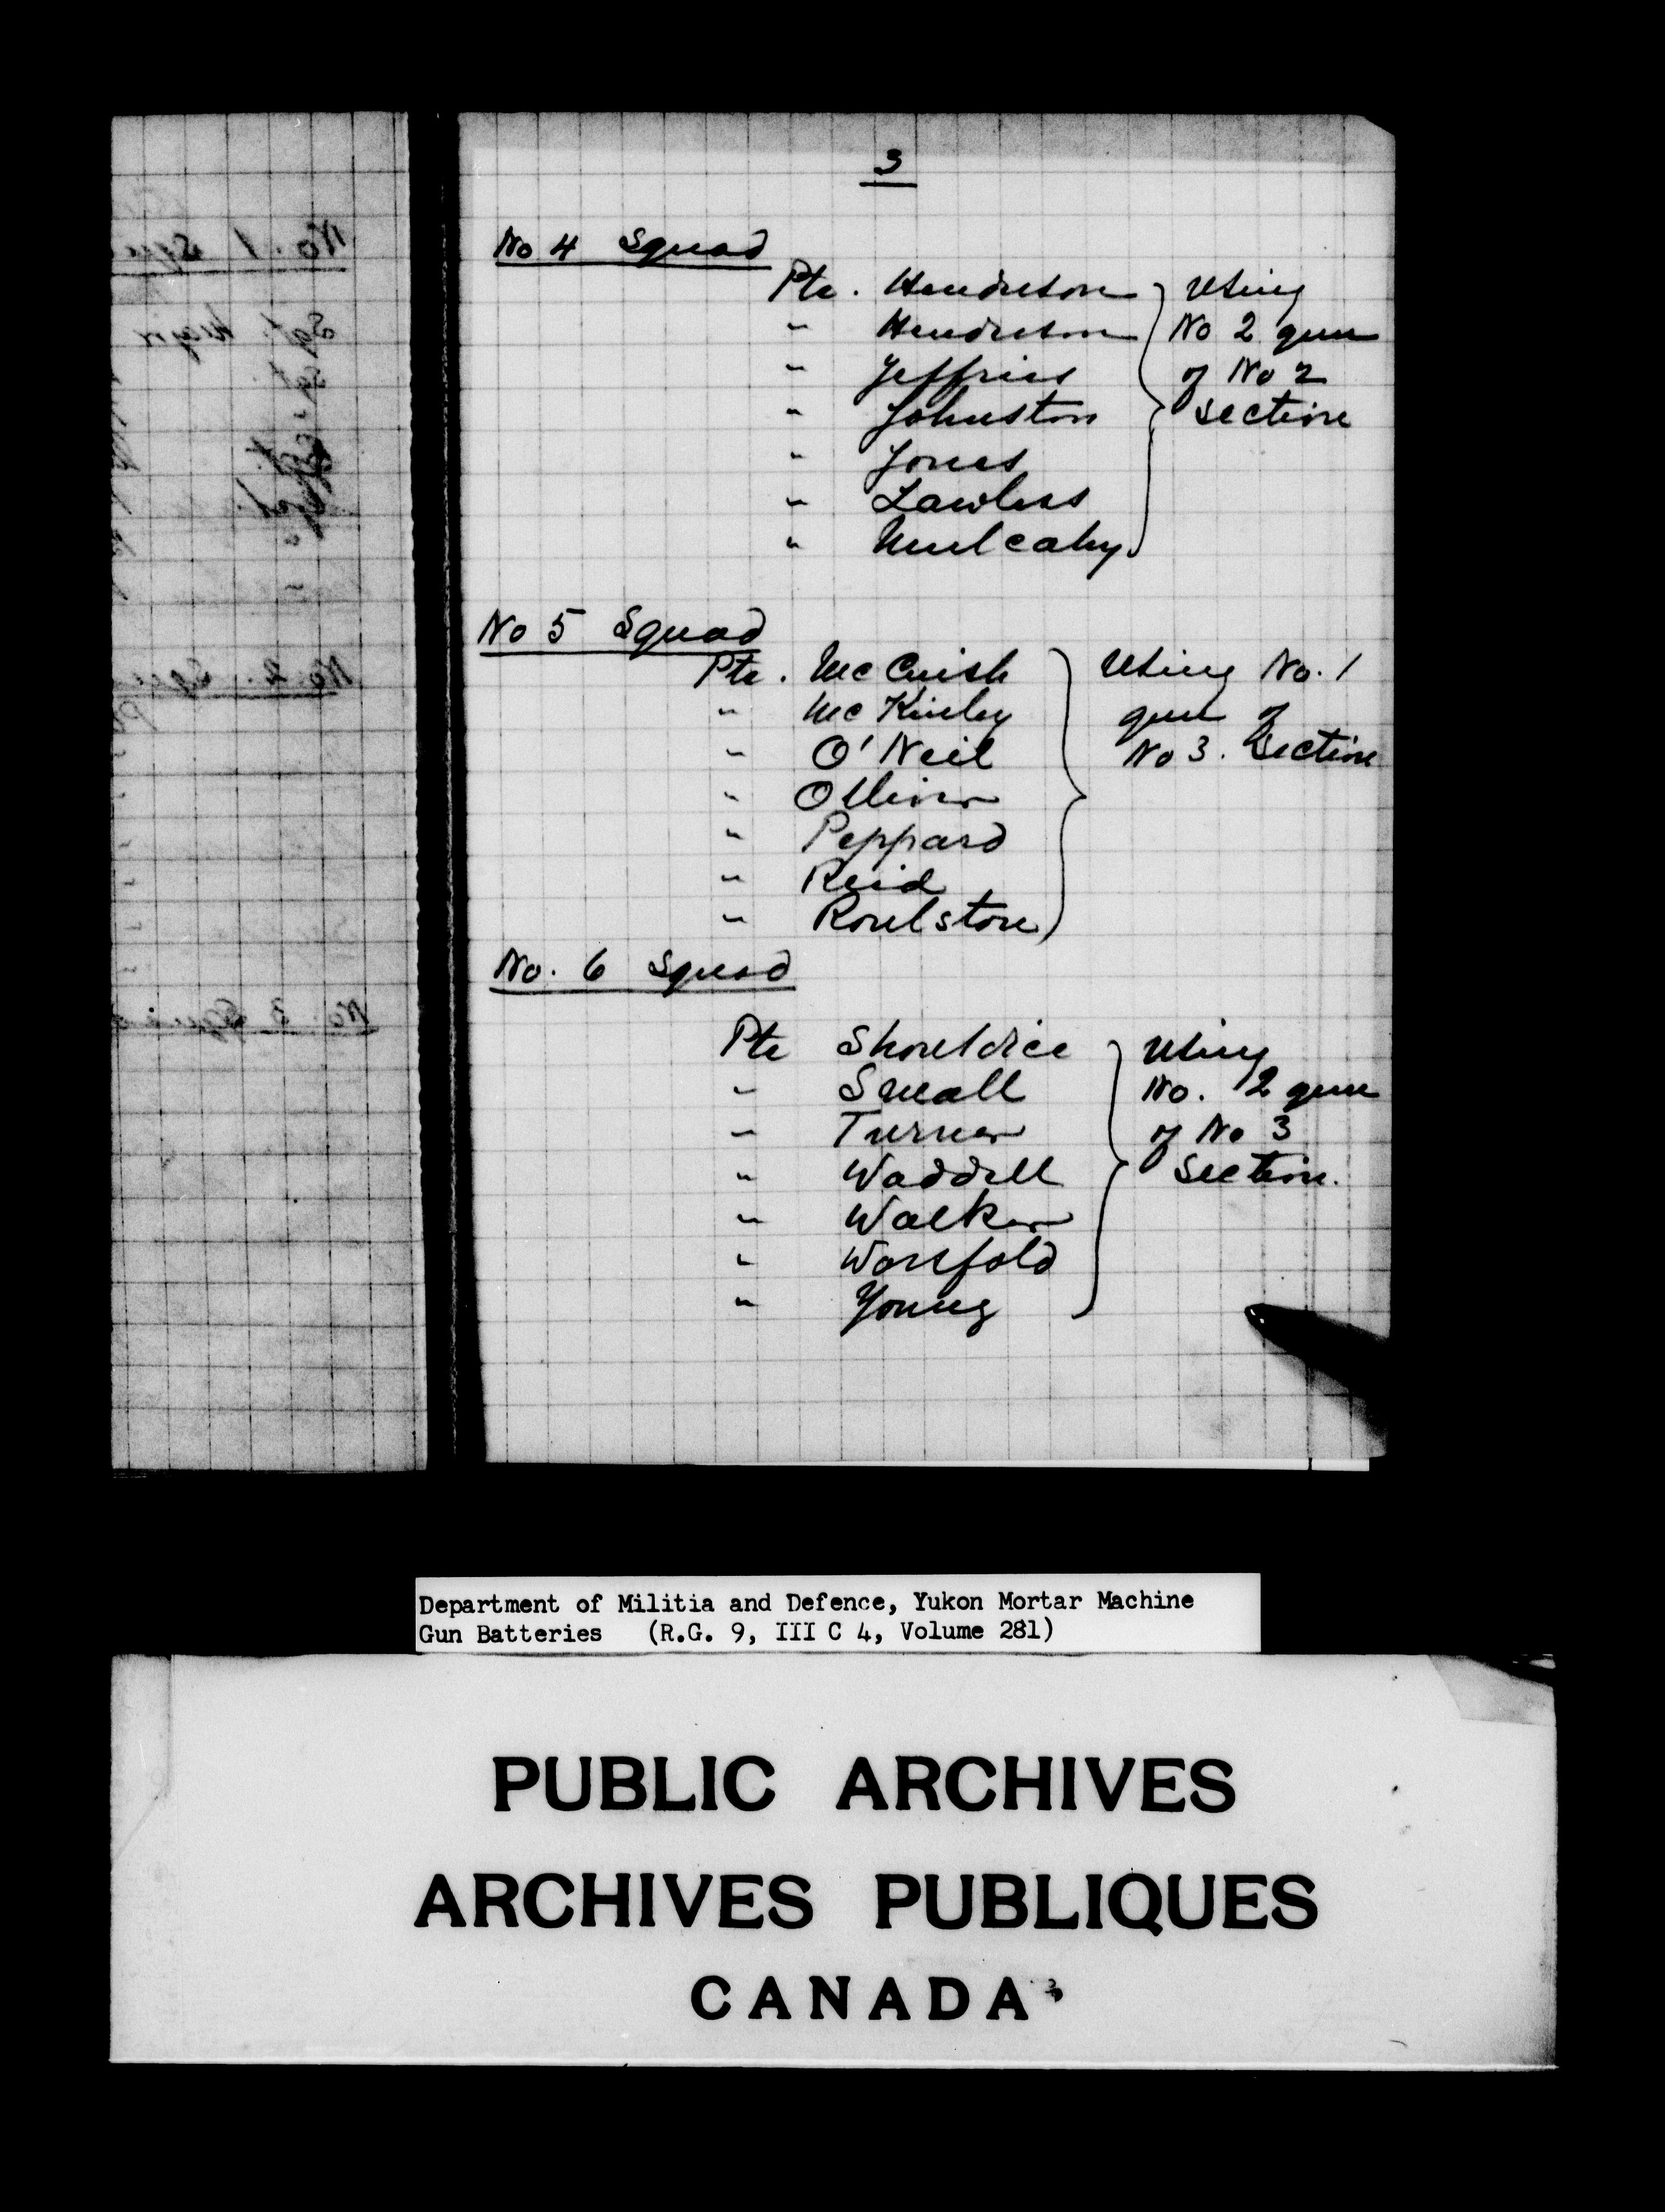 3
No 4 Squad
Pte. Henderson } Using
" Henderson No 2 gun
" Jeffries of No 2
" Johnston Section
" Jones
" Lawless
" Mulcahy
No 5 Squad
Pte. McCuish } Using No. 1
" McKinley gun of
" O'Neil No 3. Section
" Olliver
" Peppard
" Reid
" Roulston
No. 6 Squad
Pte Shouldice } Using
" Small No. 2 gun
" Turner of No 3
" Waddell Section.
" Walker
" Worsfold
" Young
Department of Militia and Defence, Yukon Mortar Machine
Gun Batteries (R.G. 9, III C 4, Volume 281)
PUBLIC ARCHIVES
ARCHIVES PUBLIQUES
CANADA